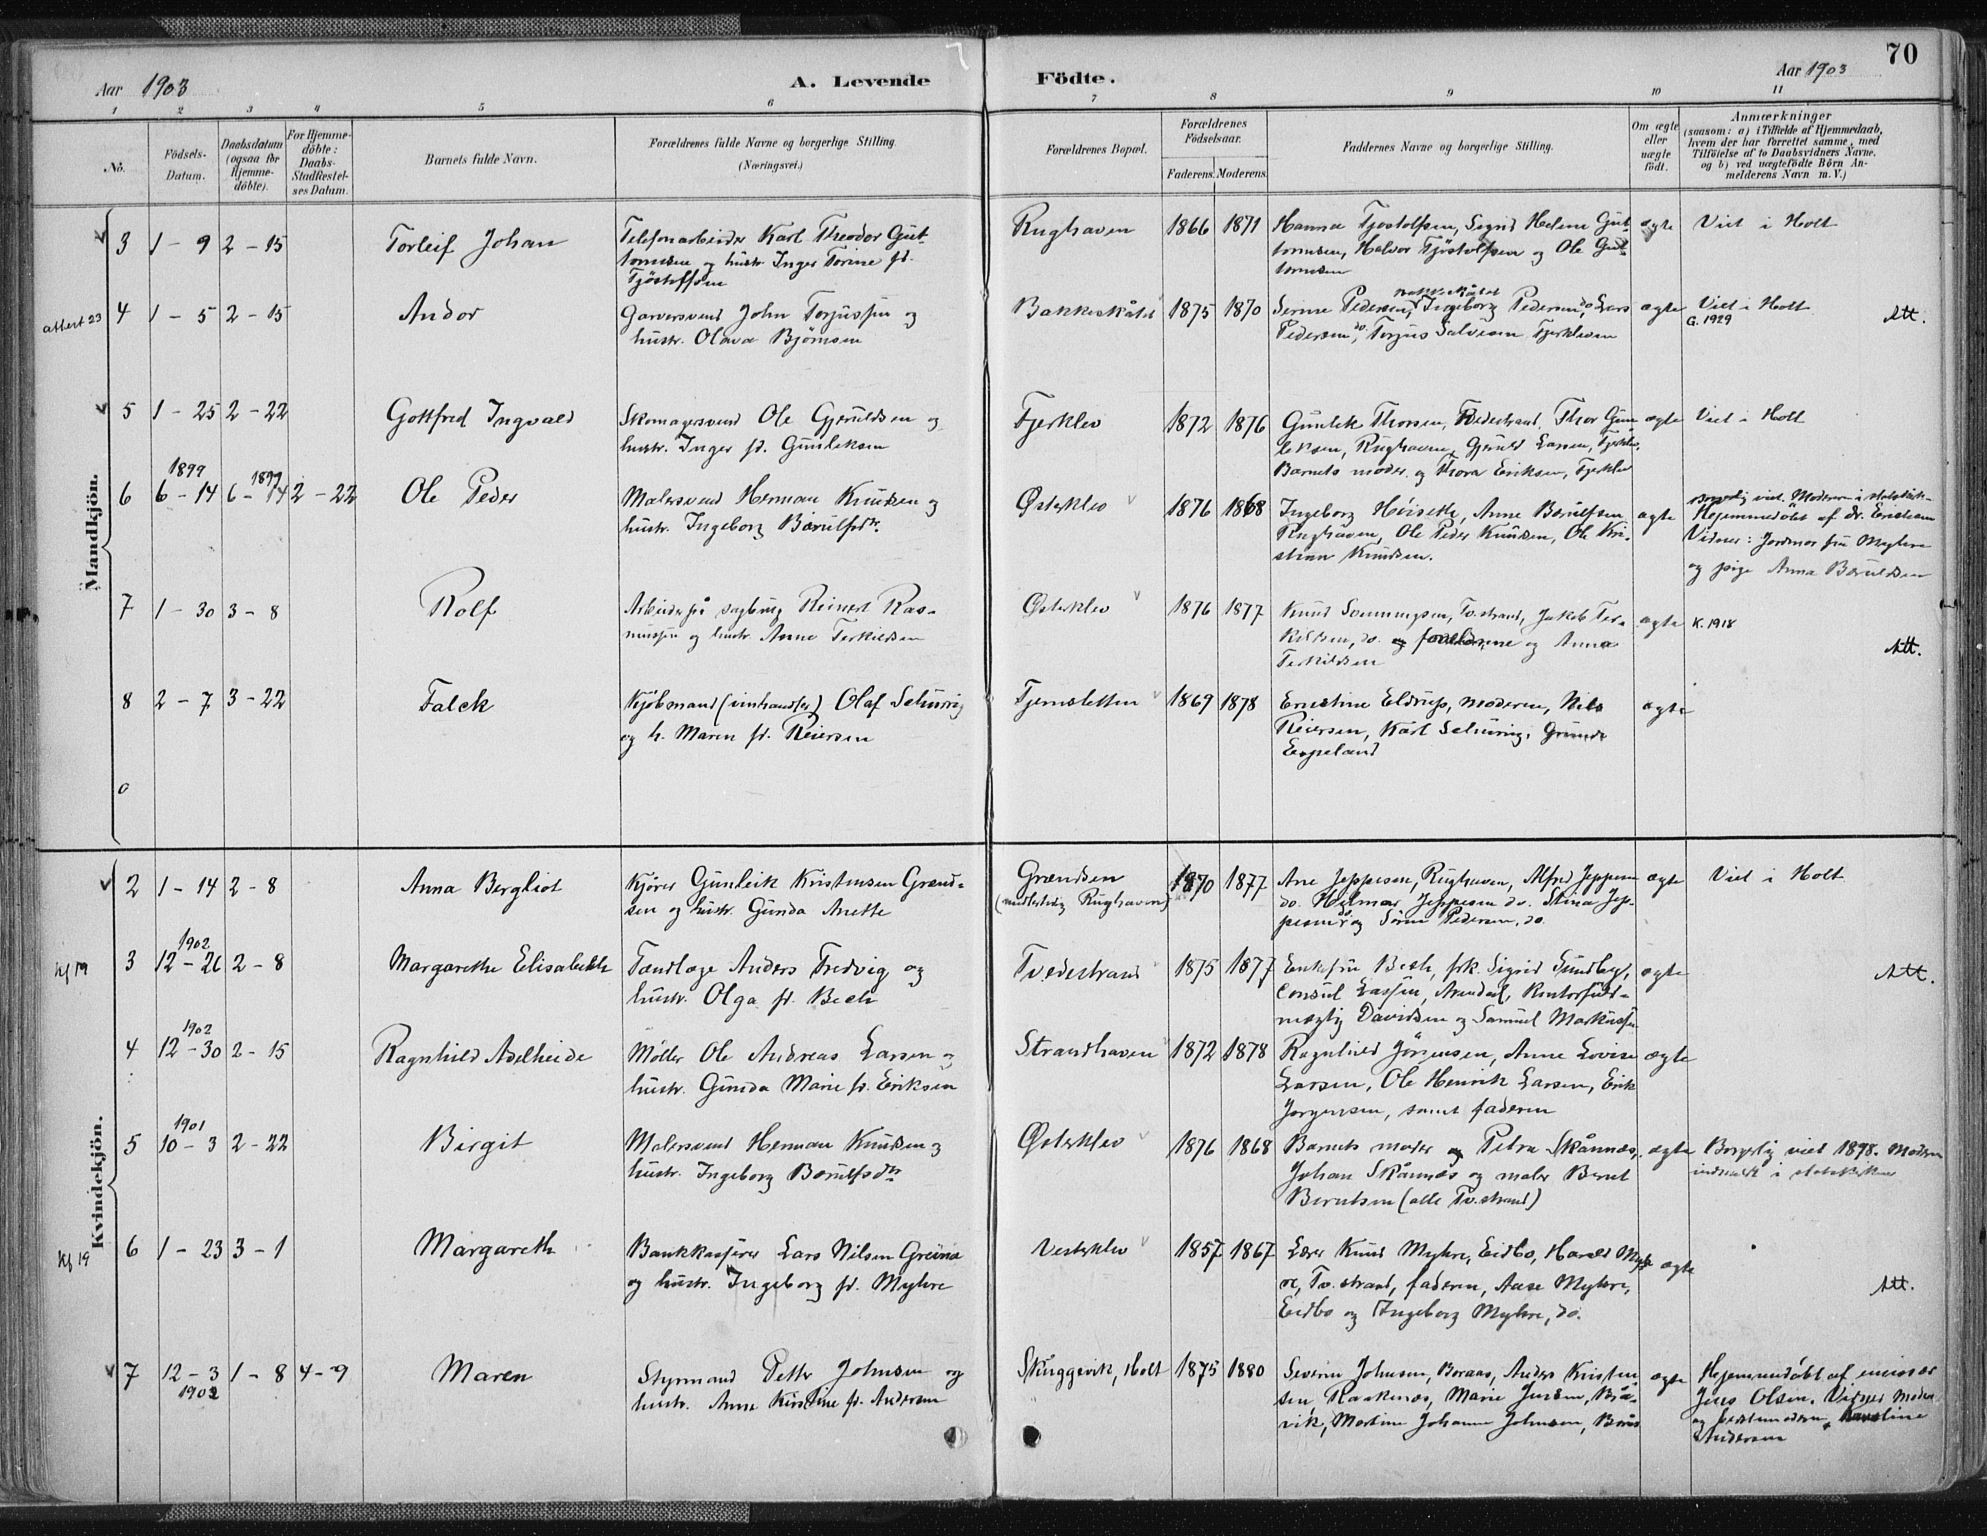 70
Aar 1903
A. Levende Födte.
Aar 1903
1 2 3 4 5 6 7 8 9 10 11
No.
Födsels-Datum.
Daabsdatum (ogsaa for Hjemme-döbte).
For Hjemme-döbte: Daabs-Stadfestel-ses Datum.
Barnets fulde Navn.
Forældrenes fulde Navne og borgerlige Stilling.
(Næringsvei.)
Forældrenes Bopæl.
Forældrenes Födselsaar.
Faderens. Moderens.
Faddernes Navne og borgerlige Stilling.
Om ægte eller uægte födt.
Anmærkninger
(saasom: a) i Tilfælde af Hjemmedaab,
hvem der har forrettet samme, med
Tilföielse af to Daabsvidners Navne.
og b) ved uægtefödte Börn An-
melderens Navn m. V.)
Mandkjön.
3 1 - 9 2 - 15 Torleif Johan
Telefonarbeider Karl Theodor Gut-
tormsen og hustr. Inger Torine f.
Tjöstolfsen
Rughaven 1866 1871
Hanna Tjostolfsen, Sigrid Helene Gut-
tormsen, Halvor Tjöstolfsen og Ole Gut-
tormsen
ægte Viet i Holt
attest 23 4 1 - 5 2 - 15 Andor
Garversvend John Torjussen og
hustr. Olava Bjørnsen
Bakkeskåtet 1875 1870
Serine Pedersen, Ingeborg Pedersen, do. Lars
Pedersen, do. Torjus Salvesen Tjerkleven
ægte Viet i Holt
G. 1929
Att.
5 1 - 25 2 - 22 Gottfred Ingvald
Skomagersvend Ole Gjeruldsen og
hustr. Inger f. Gunleksen
Fjerklev 1872 1876
Gunlek Thorsen, Tvedestrand, Thor Gun-
leksen, Rughaven, Gjeruld Larsen, Fjerklev,
Barnets moder og Thora Eriksen, Fjerklev
ægte Viet i Holt
1899 1899
6 6 - 14 6 - 14 2 - 22 Ole Peder
Malersvend Herman Knudsen og
hustr. Ingeborg Børulfsdtr.
Østerklev 1876 1868
Ingeborg Høiseth, Anne Børulfsen
Rughaven, Ole Peder Knudsen, Ole Kri-
stian Knudsen.
ægte
Hjemmedøbt af dr.
Vidner: Jordmor fru Myhre
og pige Anna Børuldsen
7 1 - 30 3 - 8 Rolf
Arbeider på sagbrug Reinert Ras-
mussen og hustr. Anne Terkildsen
Østerklev 1876 1877
Knud Sommingsen, Tv.strand, Jakob Ter-
kildsen, do. og forældrene og Anna
Terkildsen
ægte K. 1918
Att.
8 2 - 7 3 - 22 Falck
Kjøbmand (vinhandler) Olaf Schiørrig
og h. Maren f. Reiersen
Tjernsletten 1869 1878
Ernestine Eldrup, moderen, Nils
Reiersen, Karl
Espeland
ægte
0
Kvindekjön.
2 1 - 14 2 - 8 Anna Bergliot
Kjører Gunleik Kristensen Grænd-
sen og hustr. Gunda Anette
Grændsen
(midlertidig Rughaven)
1870 1877
Ane Jeppesen, Rughaven, Alfred Jeppesen
do. Hjelmar Jeppesen do. Stina Jep-
pesen do. og Sörine Pedersen, do.
ægte Viet i Holt
1902
kf 19 3 12 - 26 2 - 8 Margarethe Elisabeth
Tandlæge Anders Fredvig og
hustr. Olga f. Bech
Tvedestrand 1875 1877
Enkefru Bech, frk. Sigrid Sundbye,
Consul Lassen, Arendal, Kontorfuld-
mægtig Davidsen og Samuel Markussen
ægte
Att.
1902
4 12 - 30 2 - 15 Ragnhild Adelheide
Møller Ole Andreas Larsen og
hustr. Gunda Marie f. Eriksen
Strandhaven 1872 1878
Ragnhild Jörgensen, Anne Lovise
Larsen, Ole Henrik Larsen, Erik
Jorgensen, samt faderen
ægte
1901
5 10 - 3 2 - 22 Birgit
Malersvend Herman Knudsen og
hustr. Ingeborg Børulfsdtr
Østerklev 1876 1868
Barnets moder og Petra Skånnes,
Johan Skånnes og maler Bernt
Berntsen (alle Tv.strand)
ægte Borgerlig viet 1898. Moderen
indmeldt i statskirken
kf 19 6 1 - 23 3 - 1 Margareth
Bankkasserer Lars Nilsen Greiina
og hustr. Ingeborg f. Myhre
Vesterklev 1857 1867
Lærer Knud Myhre, Eidbo, Harald Myh-
re, Tv.strand, faderen, Aase Myhre,
Eidbo og Ingeborg Myhre, do.
ægte
Att.
7 12 - 3 1 - 8 4 - 9 Maren
1902
Styrmand Petter Johnsen og
hustr. Anne Kirstine f. Andersen
Skuggevik, Holt 1875 1880
Severin Johnsen, Boraas, Anders Kristen-
sen, Raakenæs, Marie Jensen, Blå-
vik, Martine Johanne Johnsen, Borås
ægte
Hjemmedøbt af emissær
Jens Olsen. Vidner Moderen
og bedstemoderen Karoline
Andersen